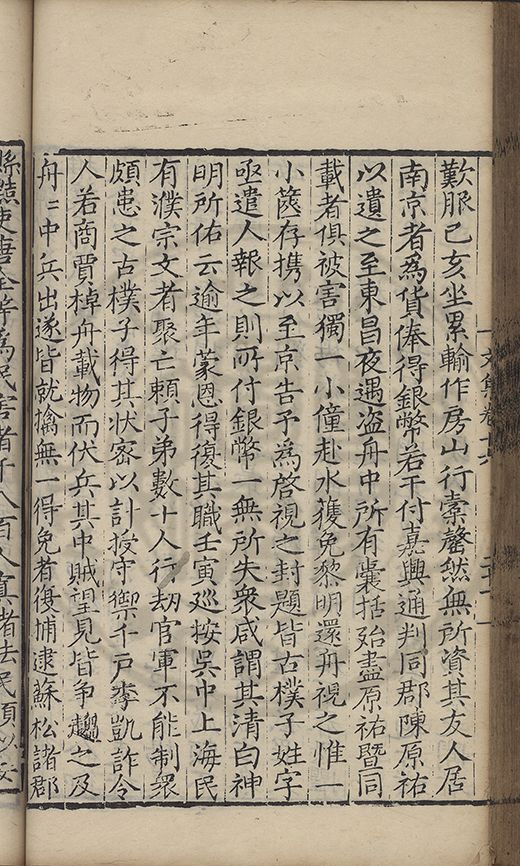 歎服己亥坐累輸作房山行橐罄然無所資其友人居
南京者爲貨俸得銀幣若干付嘉興通判同郡陳原祐
以遺之至東昌夜遇盗舟中所有囊括殆盡原祐暨同
載者俱被害獨一小僮赴水獲免黎明還舟視之惟一
小篋存携以至京告予爲啓視之封題皆古樸子姓字
亟遣人報之則所付銀幣一無所失衆咸謂其清白神
明所佑云逾年蒙恩得復其職壬寅廵按吳中上海民
有濮宗文者聚亡頼子弟數十人行刼官軍不能制衆
頗患之古樸子得其状密以計授守禦千戸李凱詐令
人若商賈棹舟載物而伏兵其中賊望見皆争趨之及
舟二中兵出遂皆就擒無一得免者復捕逮蘇松諸郡
爲民害者千八百人寘者法民頼以安
文集卷十六